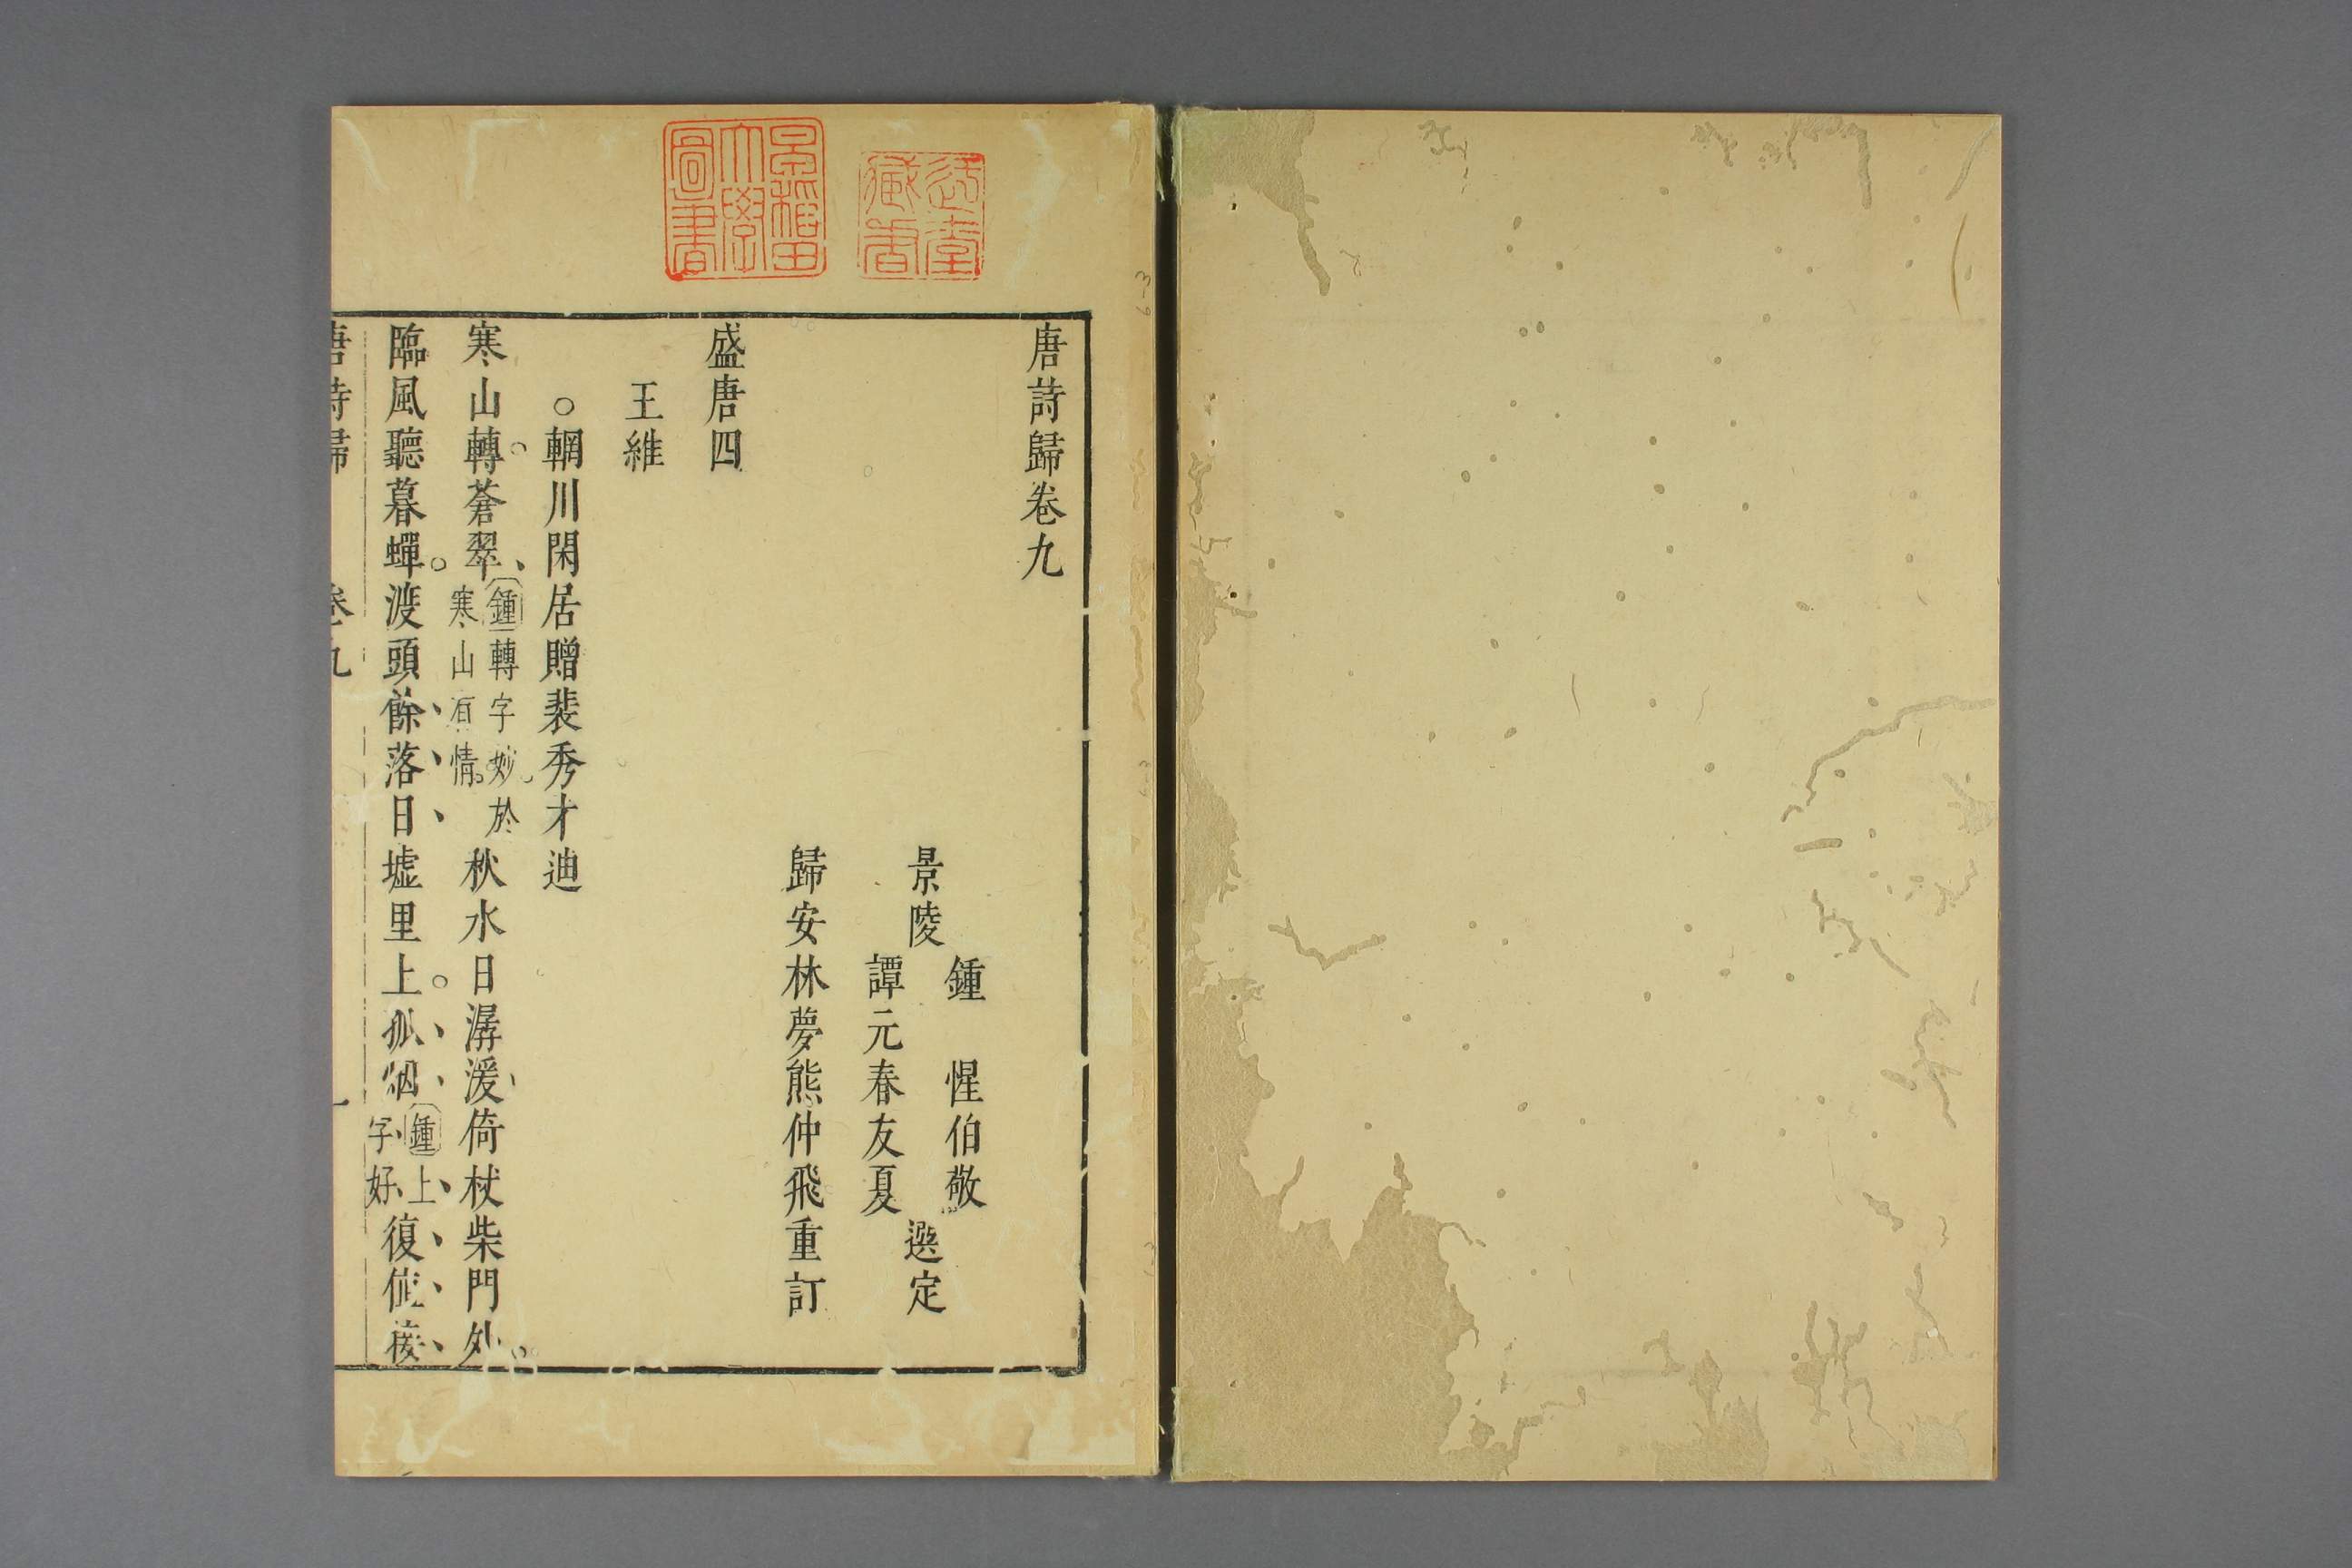 唐詩歸卷九
景陵
鍾　惺伯敬
譚元春友夏
選定
歸安林夢熊仲飛重訂
盛唐四
王維
○輞川閑居贈裴秀才迪
寒山轉蒼翠
鍾轉字妙於
寒山有情
秋水日潺湲倚杖柴門外
臨風聽暮蟬渡頭餘落日墟里上孤烟
鍾上
字好
復値接
唐詩歸　卷九　一
早稻田大學圖書
藏書